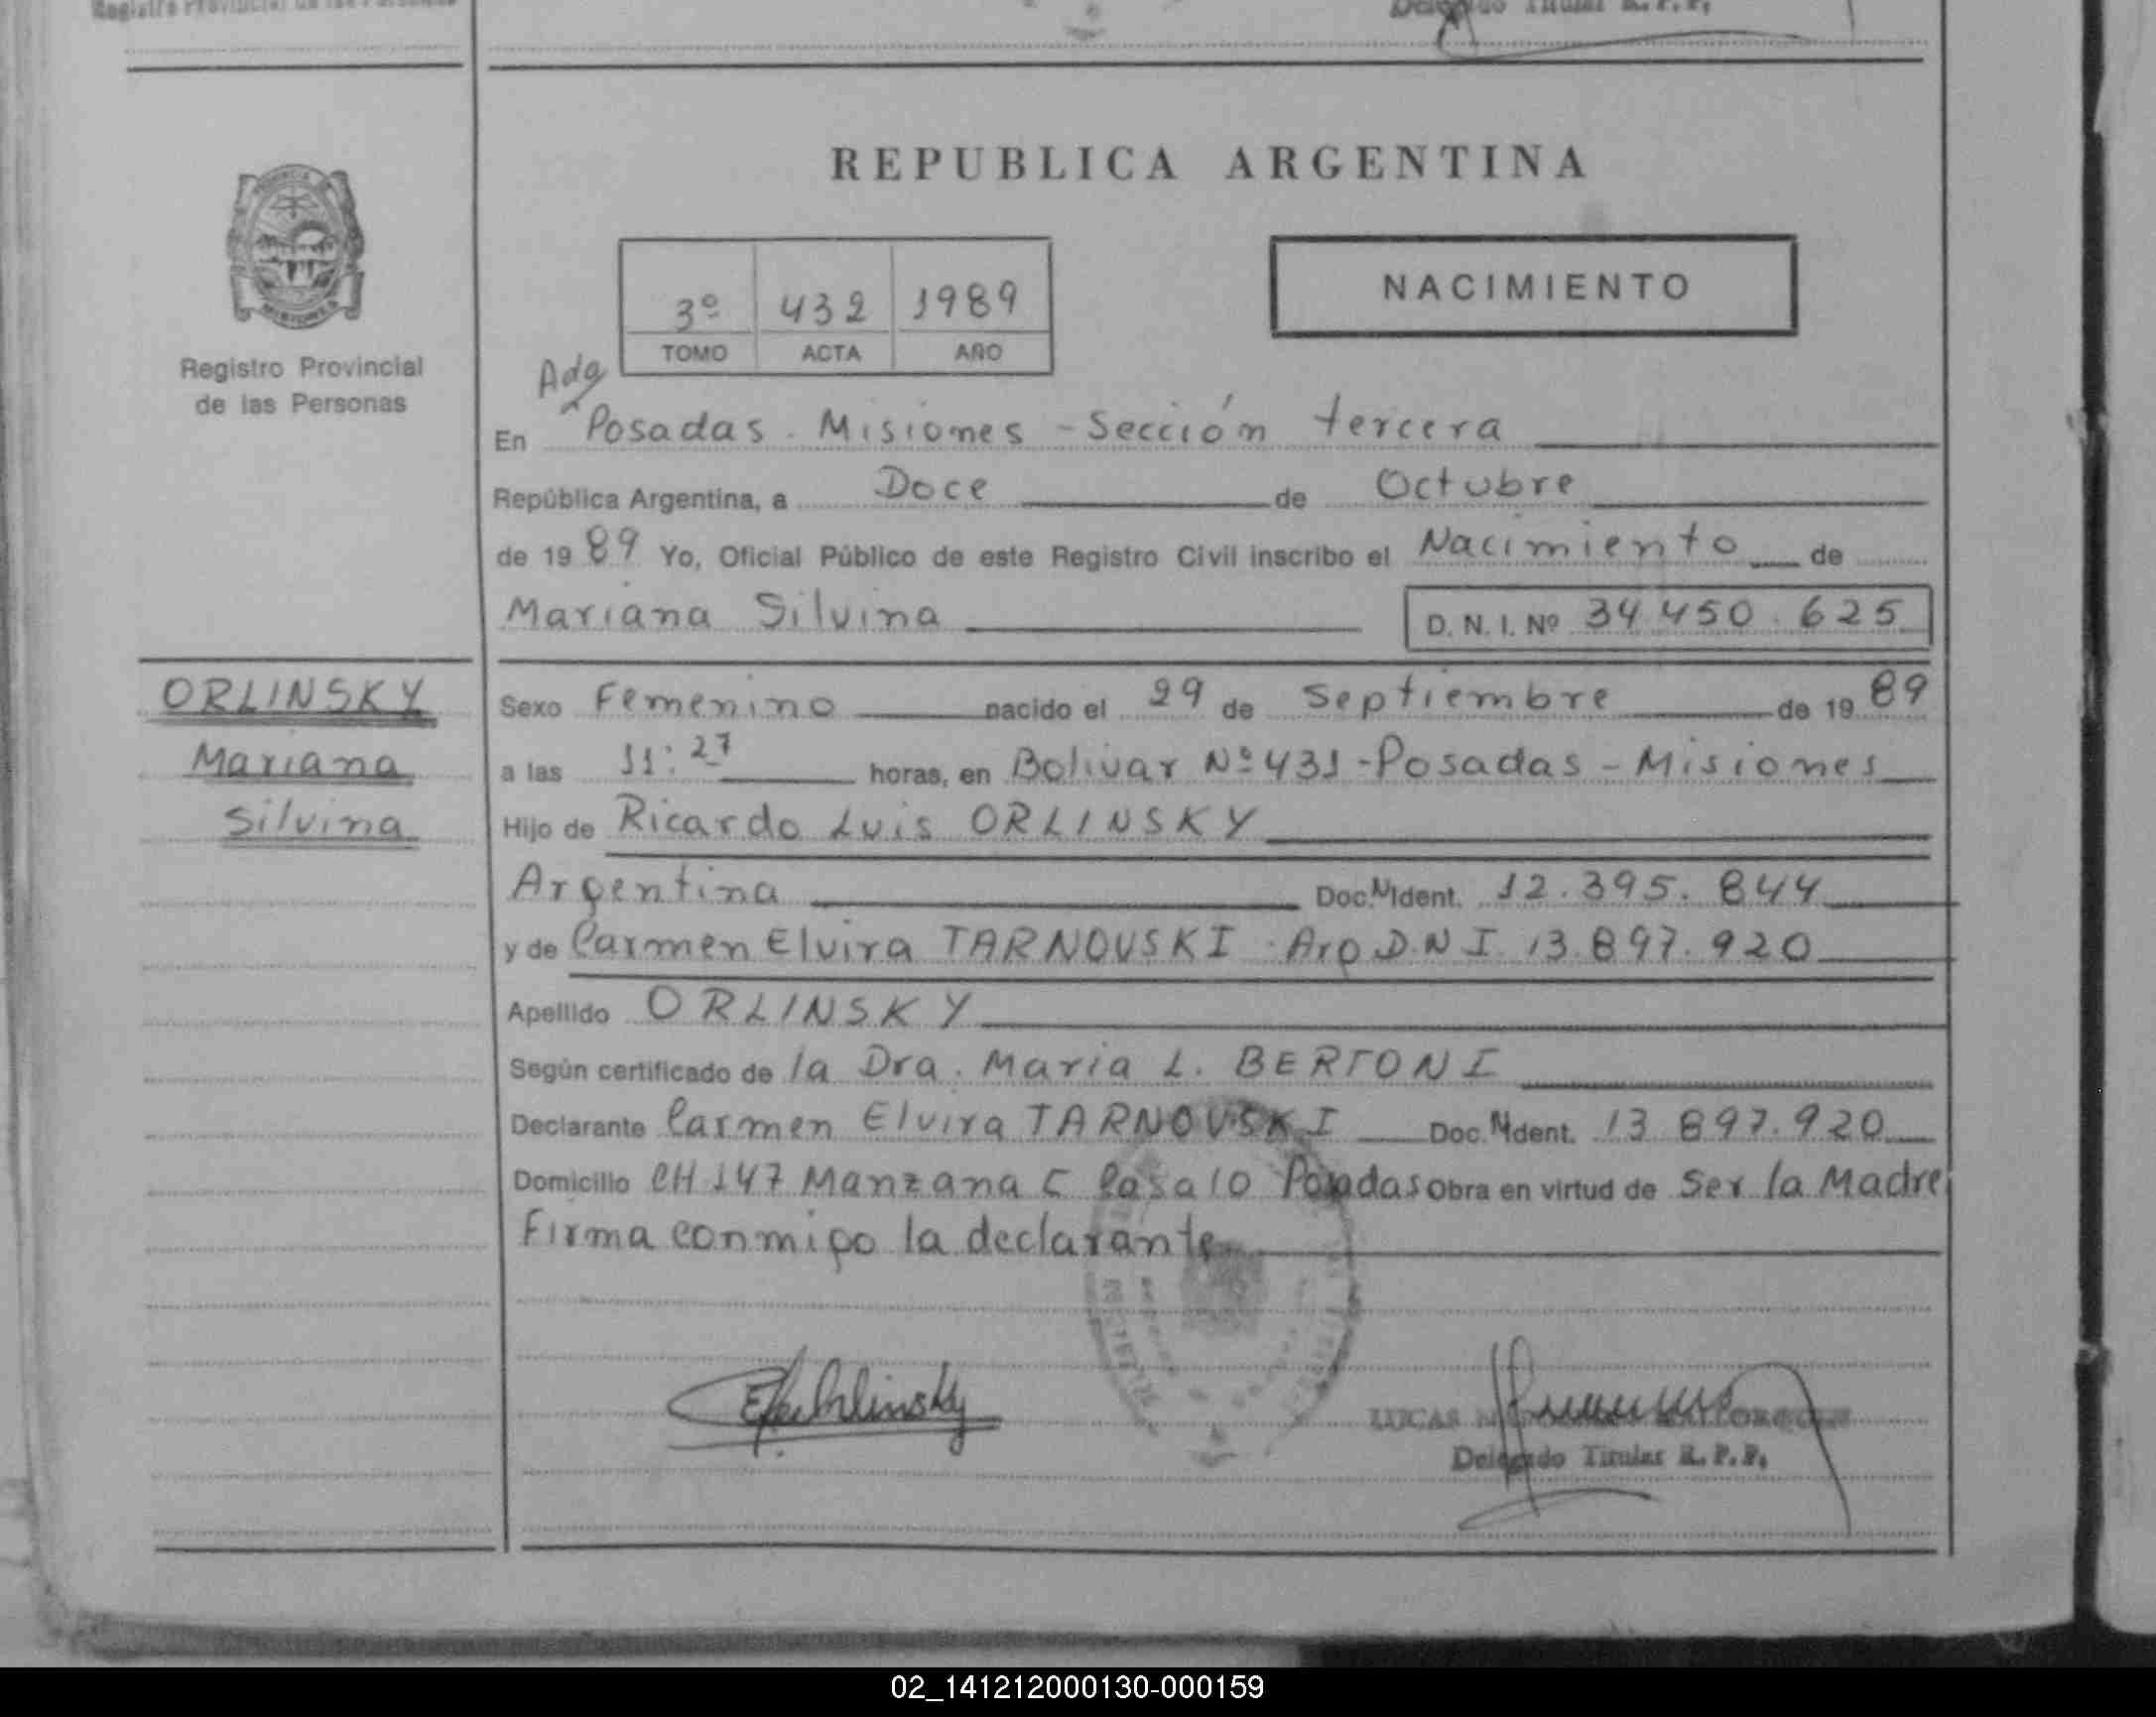 Registro Provincial de las Personas
Delegado Titular R.P.P.
REPUBLICA ARGENTINA
NACIMIENTO
3º 432 1989
TOMO ACTA AÑO
Registro Provincial
de las Personas
En Posadas - Misiones - Sección tercera
República Argentina, a Doce de Octubre
de 1989 Yo, Oficial Público de este Registro Civil inscribo el Nacimiento de
Mariana Silvina D. N. I. Nº 34 450.625
ORLINSKY
Mariana
Silvina
Sexo Femenino nacido el 29 de Septiembre de 1989
a las 11:27 horas, en Bolivar Nº 431 - Posadas - Misiones
Hijo de Ricardo Luis ORLINSKY
Argentina Doc. N Ident. 12.395.844
y de Carmen Elvira TARNOVSKI Arg D.N.I. 13.897.920
Apellido ORLINSKY
Según certificado de la Dra. Maria L. BERTONI
Declarante Carmen Elvira TARNOVSKI Doc. N Ident. 13 897.920
Domicilio CH 147 Manzana C Casa 10 Posadas Obra en virtud de Ser la Madre
Firma conmigo la declarante
LUCAS
Delegado Titular R.P.P.
02_141212000130-000159